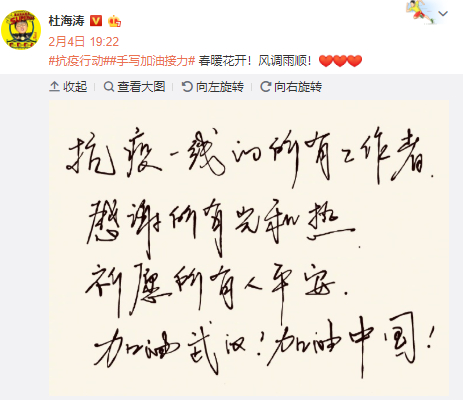 杜海涛
2月4日 19:22
#抗疫行动##手写加油接力# 春暖花开！风调雨顺！
收起 查看大图 向左旋转 向右旋转
抗疫一线的所有工作者.
感谢所有光和热.
祈愿所有人平安.
加油武汉！加油中国！